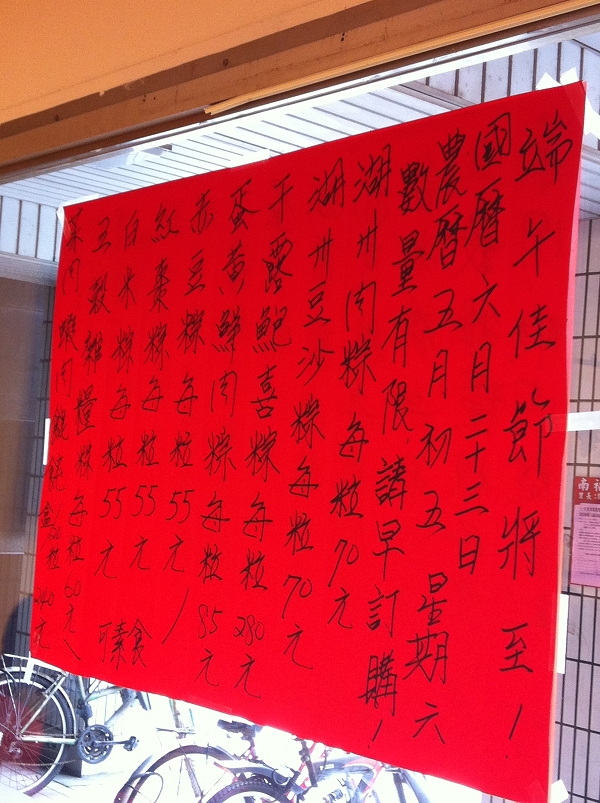 端午佳節將至!
國曆六月二十三日
農曆五月初五 星期六
數量有限 請早訂購!
湖州肉粽每粒70元
湖州豆沙粽每粒70元
干露鮑喜粽每粒280元
蛋黃鮮肉粽每粒85元
赤豆粽每粒55元
紅棗粽每粒55元
白米粽每粒55元
可素食
五穀雜糧粽每粒60元
菜肉蝦肉餛飩盒 粒240元